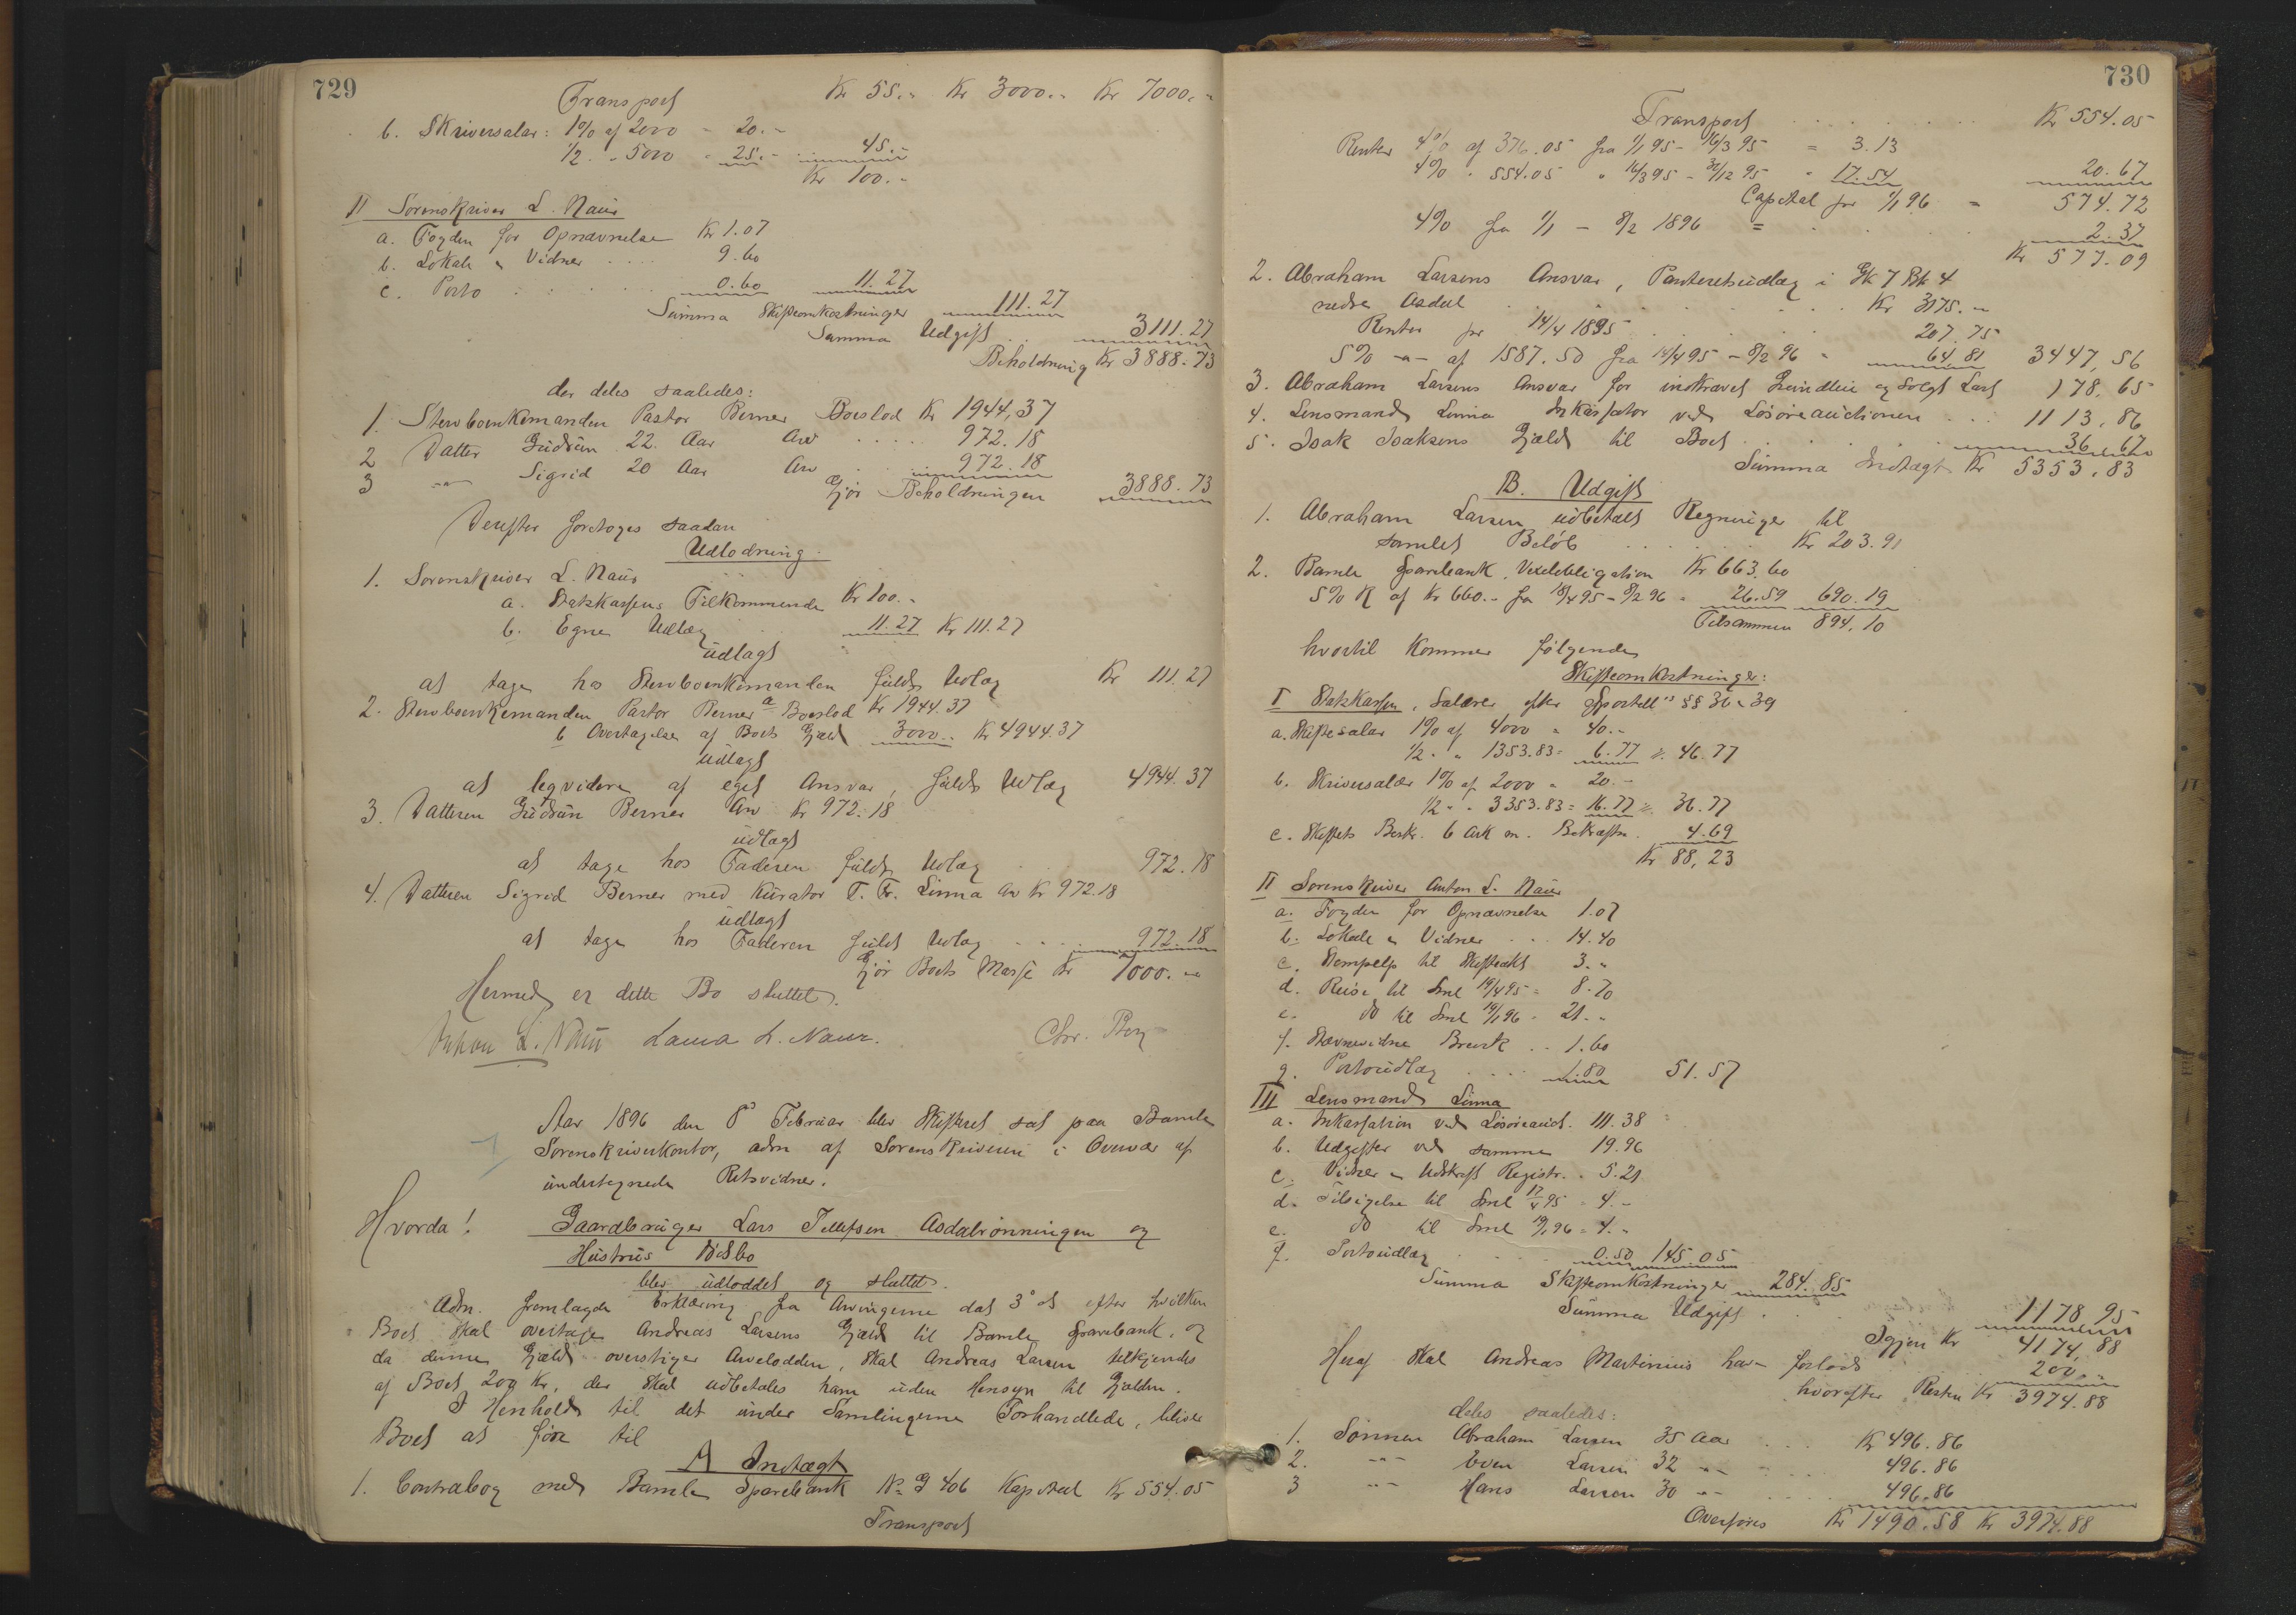 729
Transport Kr 55.- Kr 3000.- Kr 7000.-
b. Skriversalar: 1% af 2000 - 20.-
1/2 - " 5000 - 25.- 45.-
Kr 100.-
II Sorenskriver L. Naur
a. Fogden for Opnævnelse Kr 1.07
b. Lokale & Vidner .... 9.60
c. Porto ..... 0.60 11.27
Summa Skifteomkostninger 111.27
Summa Udgift .. 3111.27
Beholdning Kr 3888.73
der deles saaledes:
1. Stervboenkemanden Pastor Berner Boeslod Kr 1944,37
2 Datter Gudrun 22. Aar Arv .... 972.18
3 -"- Sigrid 20 Aar Arv . 972.18
Gjør Beholdningen 3888.73
Derefter foretoges saadan
Udlodning.
1. Sorenskriver L. Naur
a. Statskassens Tilkommende Kr 100.-
b. Egne Udlæg 11.27 Kr 111.27
udlagt
at tage hos Stervboenkemanden fuldt Udlæg Kr 111.27
2. Stervboenkemanden Pastor Berner a Boeslod Kr 1944.37
b Overtagelse af Boets Gjæld 3000.- Kr 4944.37
udlagt
at liqvidere af eget Ansvar, fuldt Udlæg 4944.37
3. Datteren Gudrun Berner Arv Kr 972.18
udlagt
at tage hos Faderen fuldt Udlæg 972.18
4. Datteren Sigrid Berner med Kurator T. Fr. Linna Arv Kr 972.18
udlagt
at tage hos Faderen fuldt Udlæg ... 972.18
Gjør Boets Masse Kr 7000.-
Hermed er dette Bo sluttet.
Anton L. Naur Laura L. Naur. Chr. Berg
Aar 1896 den 8de Februar blev Skifteret sat paa Bamle
Sorenskriverkontor, adm af Sorenskriveren i Overvær af
undertegnede Retsvidner.
Hvorda! Gaardbruger Lars Tellefsen Asdalrønningen og
Hustrus Dødsbo
blev udloddet og sluttet.
Adm. fremlagde Erklæring fra Arvingerne dat 3' ds efter hvilken
Boet skal overtage Andreas Larsens Gjæld til Bamle Sparebank, og
da denne Gjæld overstiger Arvelodden, skal Andreas Larsen tilkjendes
af Boet 200 Kr, der skal udbetales ham uden Hensyn til Gjælden.
I Henhold til det under Samlingerne Forhandlede, bliver
Boet at føre til
A Indtægt
1. Contrabog med Bamle Sparebank No G 406 Kapital Kr 554.05
Transport
730
Transport ....... Kr 554.05
Renter 4% af 376.05 fra 1/1 95 - 16/3 95 = 3.13
4% " 554.05 " 16/3 95 - 31/12 95 " 17.54 20.67
Capital pr 1/1 96 = 574.72
4% fra 1/1 - 8/2 1896 = . . 2.37
Kr 577.09
2. Abraham Larsens Ansvar, Panteretsudlæg i Gk 7 Bk 4
nedre Asdal ........ Kr 3175.-
Renter pr 14/4 1895 ..... 207.75
5% -"- af 1587.50 fra 14/4 95 - 8/2 96 - 64.81 3447,56
3. Abraham Larsens Ansvar for indkrævet Grundleie og solgt Last 178.65
4. Lensmand Linna Inkassator ved Løsøreauctionen ... 1113.86
5. Isak Isaksens Gjæld til Boet ..... 36.67
Summa Indtægt Kr 5353.83
B. Udgift
1. Abraham Larsen udbetalt Regninger til
samlet Beløb ...... Kr 203.91
2. Bamle Sparebank, Vexelobligation Kr 663.60
5% R af Kr 660.- fra 18/4 95 - 8/2 96 - 26.59 690.19
Tilsammen 894.10
hvortil kommer følgende
Skifteomkostninger:
I Statskassen, Salærer efter Sportell §§ 36 & 39
a. Skiftesalar 1% af 4000 = 40.-
1/2 " " 1353.83 = 6.77 = 46.77
b. Skriversalær 1% af 2000 = 20.-
1/2 " " 3353.83 = 16.77 = 36.77
c. Skiftets Beskr. 6 Ark m. Bekræftn. 4.69
Kr 88,23
II Sorenskriver Anton L. Naur
a. Fogden for Opnævnelse 1.07
b. Lokale & Vidner ... 14.40
c. Stempelp til Skifteakt 3.-
d. Reise til Saml 19/4 95 = 8.70
e. do til Saml 19/1 96 - 21.-
f. Stævnevidne Brevik .. 1.60
g. Portoudlæg .... 1.80 51.57
III Lensmand Linna
a. Inkassation ved Løsøreauct. 111.38
b. Udgifter ved samme 19.96
c. Vidner & Udskrift Registr. . 5.21
d. Tilsigelse til Saml 17/4 95 = 4.-
e. do til Saml 19/1 96 = 4.-
f. Portoudlæg .... 0.50 145.05
Summa Skifteomkostninger 284.85
Summa Udgift . . 1178.95
Igjen Kr 4174,88
Heraf skal Andreas Martinius have forlods 200.-
hvorefter Resten Kr 3974.88
deles saaledes:
1. Sønnen Abraham Larsen 35 Aar ... Kr 496.86
2. -"- Even Larsen 32 -"- .... 496.86
3 -"- Hans Larsen 30 -"- .... 496.86
Overføres Kr 1490.58 Kr 3974.88